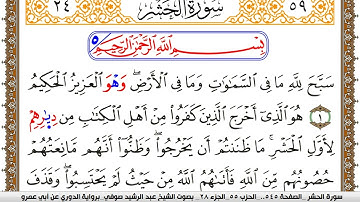 ٥٩ سُورَةُ الْحَشْرِ ٢٤
بِسْمِ اللَّهِ الرَّحْمَٰنِ الرَّحِيمِ ٥
سَبَّحَ لِلَّهِ مَا فِي السَّمَٰوَٰتِ وَمَا فِي الْأَرْضِ ۖ وَهْوَ الْعَزِيزُ الْحَكِيمُ
١ هُوَ الَّذِي أَخْرَجَ الَّذِينَ كَفَرُوا مِنْ أَهْلِ الْكِتَٰبِ مِن دِيَٰرِهِمْ
لِأَوَّلِ الْحَشْرِ ۚ مَا ظَنَنتُمْ أَن يَخْرُجُوا ۖ وَظَنُّوا أَنَّهُم مَّانِعَتُهُمْ
حُصُونُهُم مِّنَ اللَّهِ فَأَتَىٰهُمُ اللَّهُ مِنْ حَيْثُ لَمْ يَحْتَسِبُوا ۖ وَقَذَفَ
سورة الحشر_ الصفحة ٥٤٥.. الحزب ٥٥ الجزء ٢٨ . بصوت الشيخ عبد الرشيد صوفي. برواية الدوري عن أبي عمرو